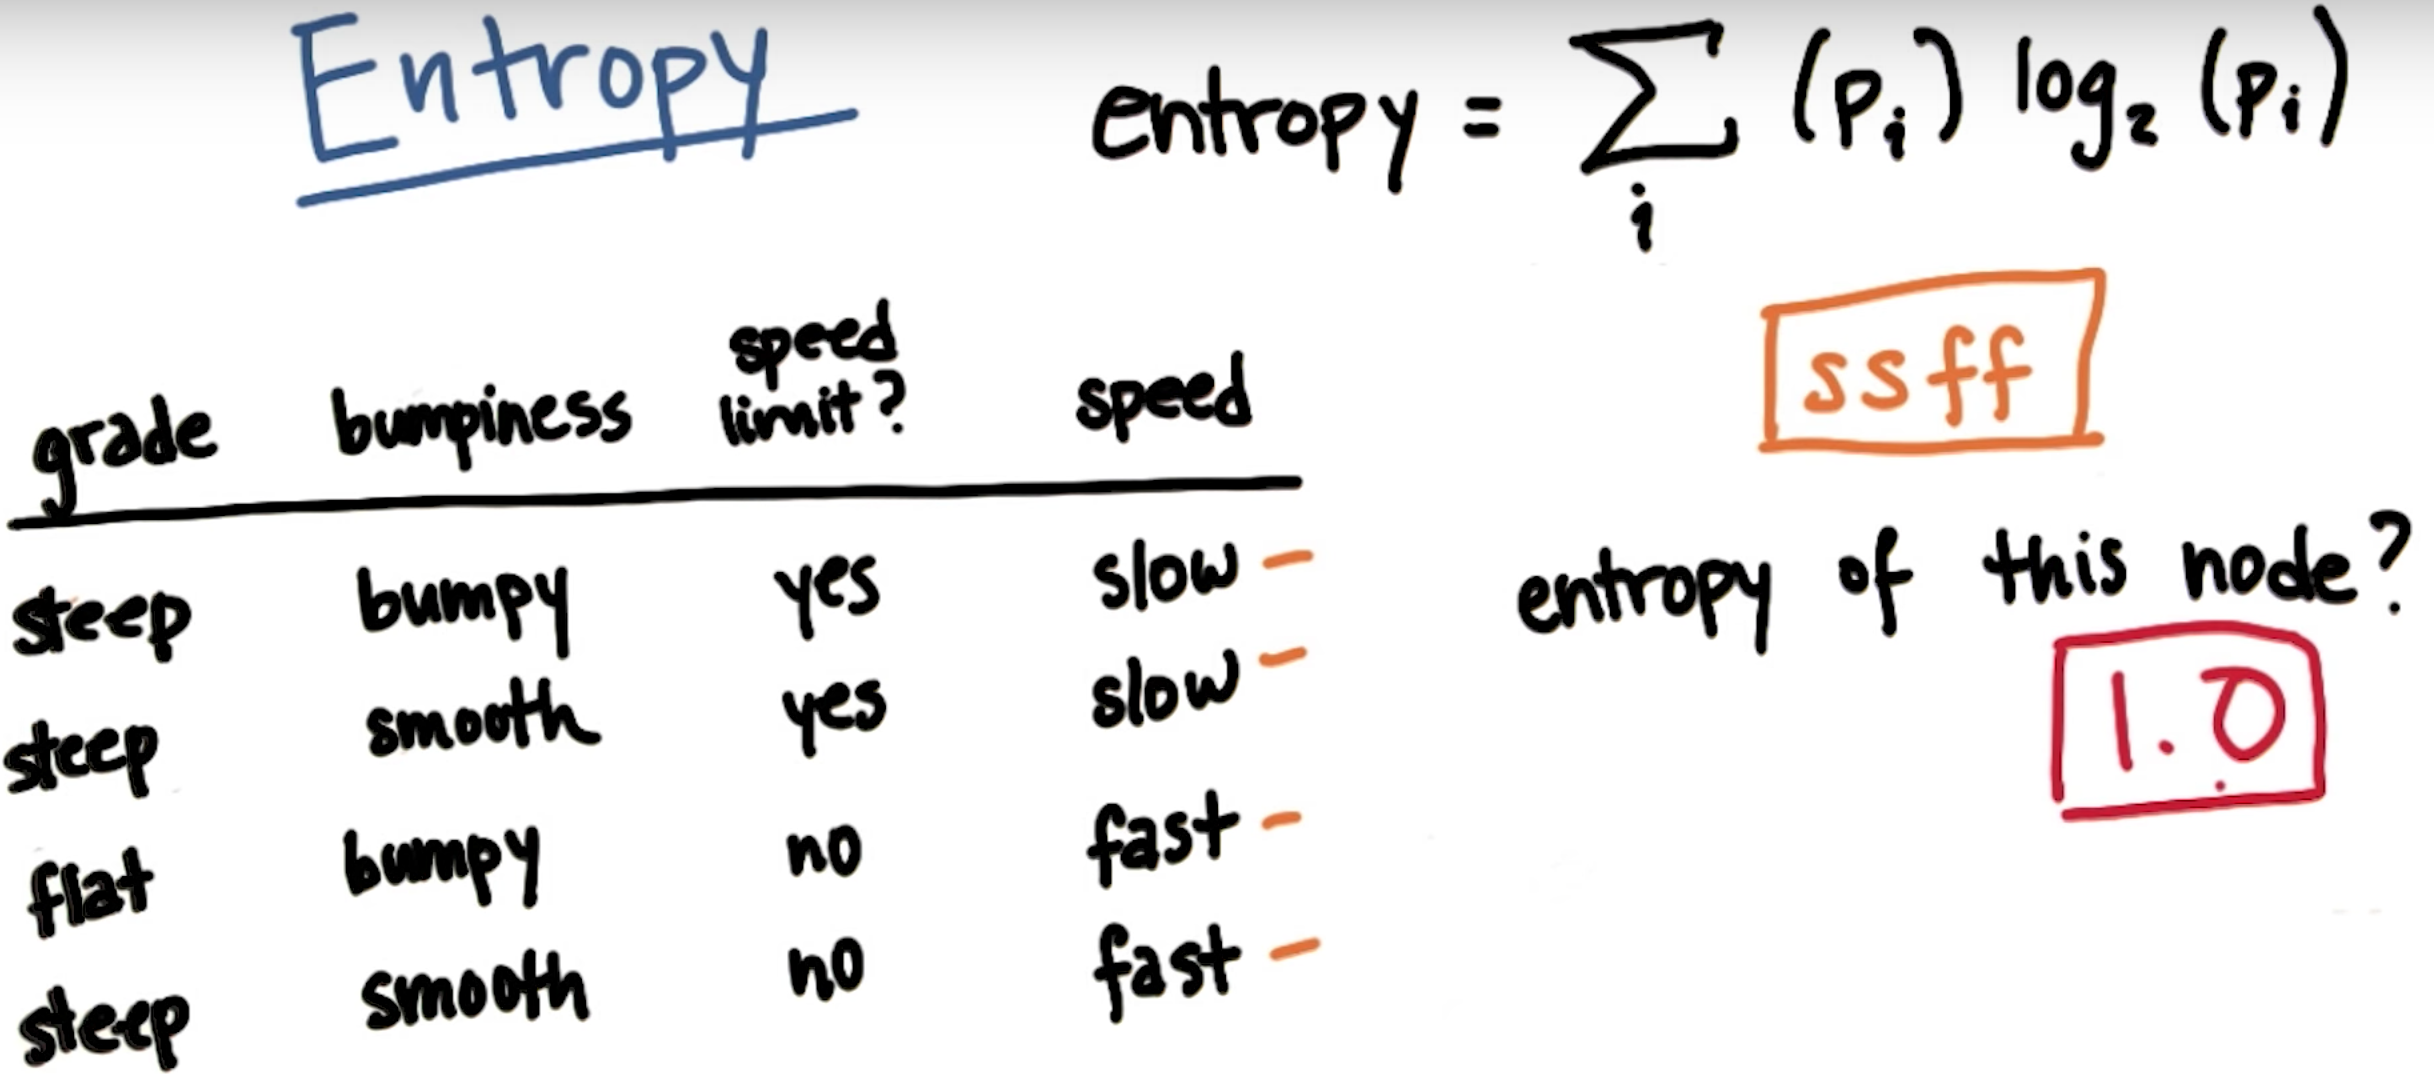 Entropy
entropy = ∑ (pᵢ) log₂ (pᵢ)
i
ssff
grade bumpiness speed limit? speed
steep bumpy yes slow –
steep smooth yes slow –
flat bumpy no fast –
steep smooth no fast –
entropy of this node?
1.0